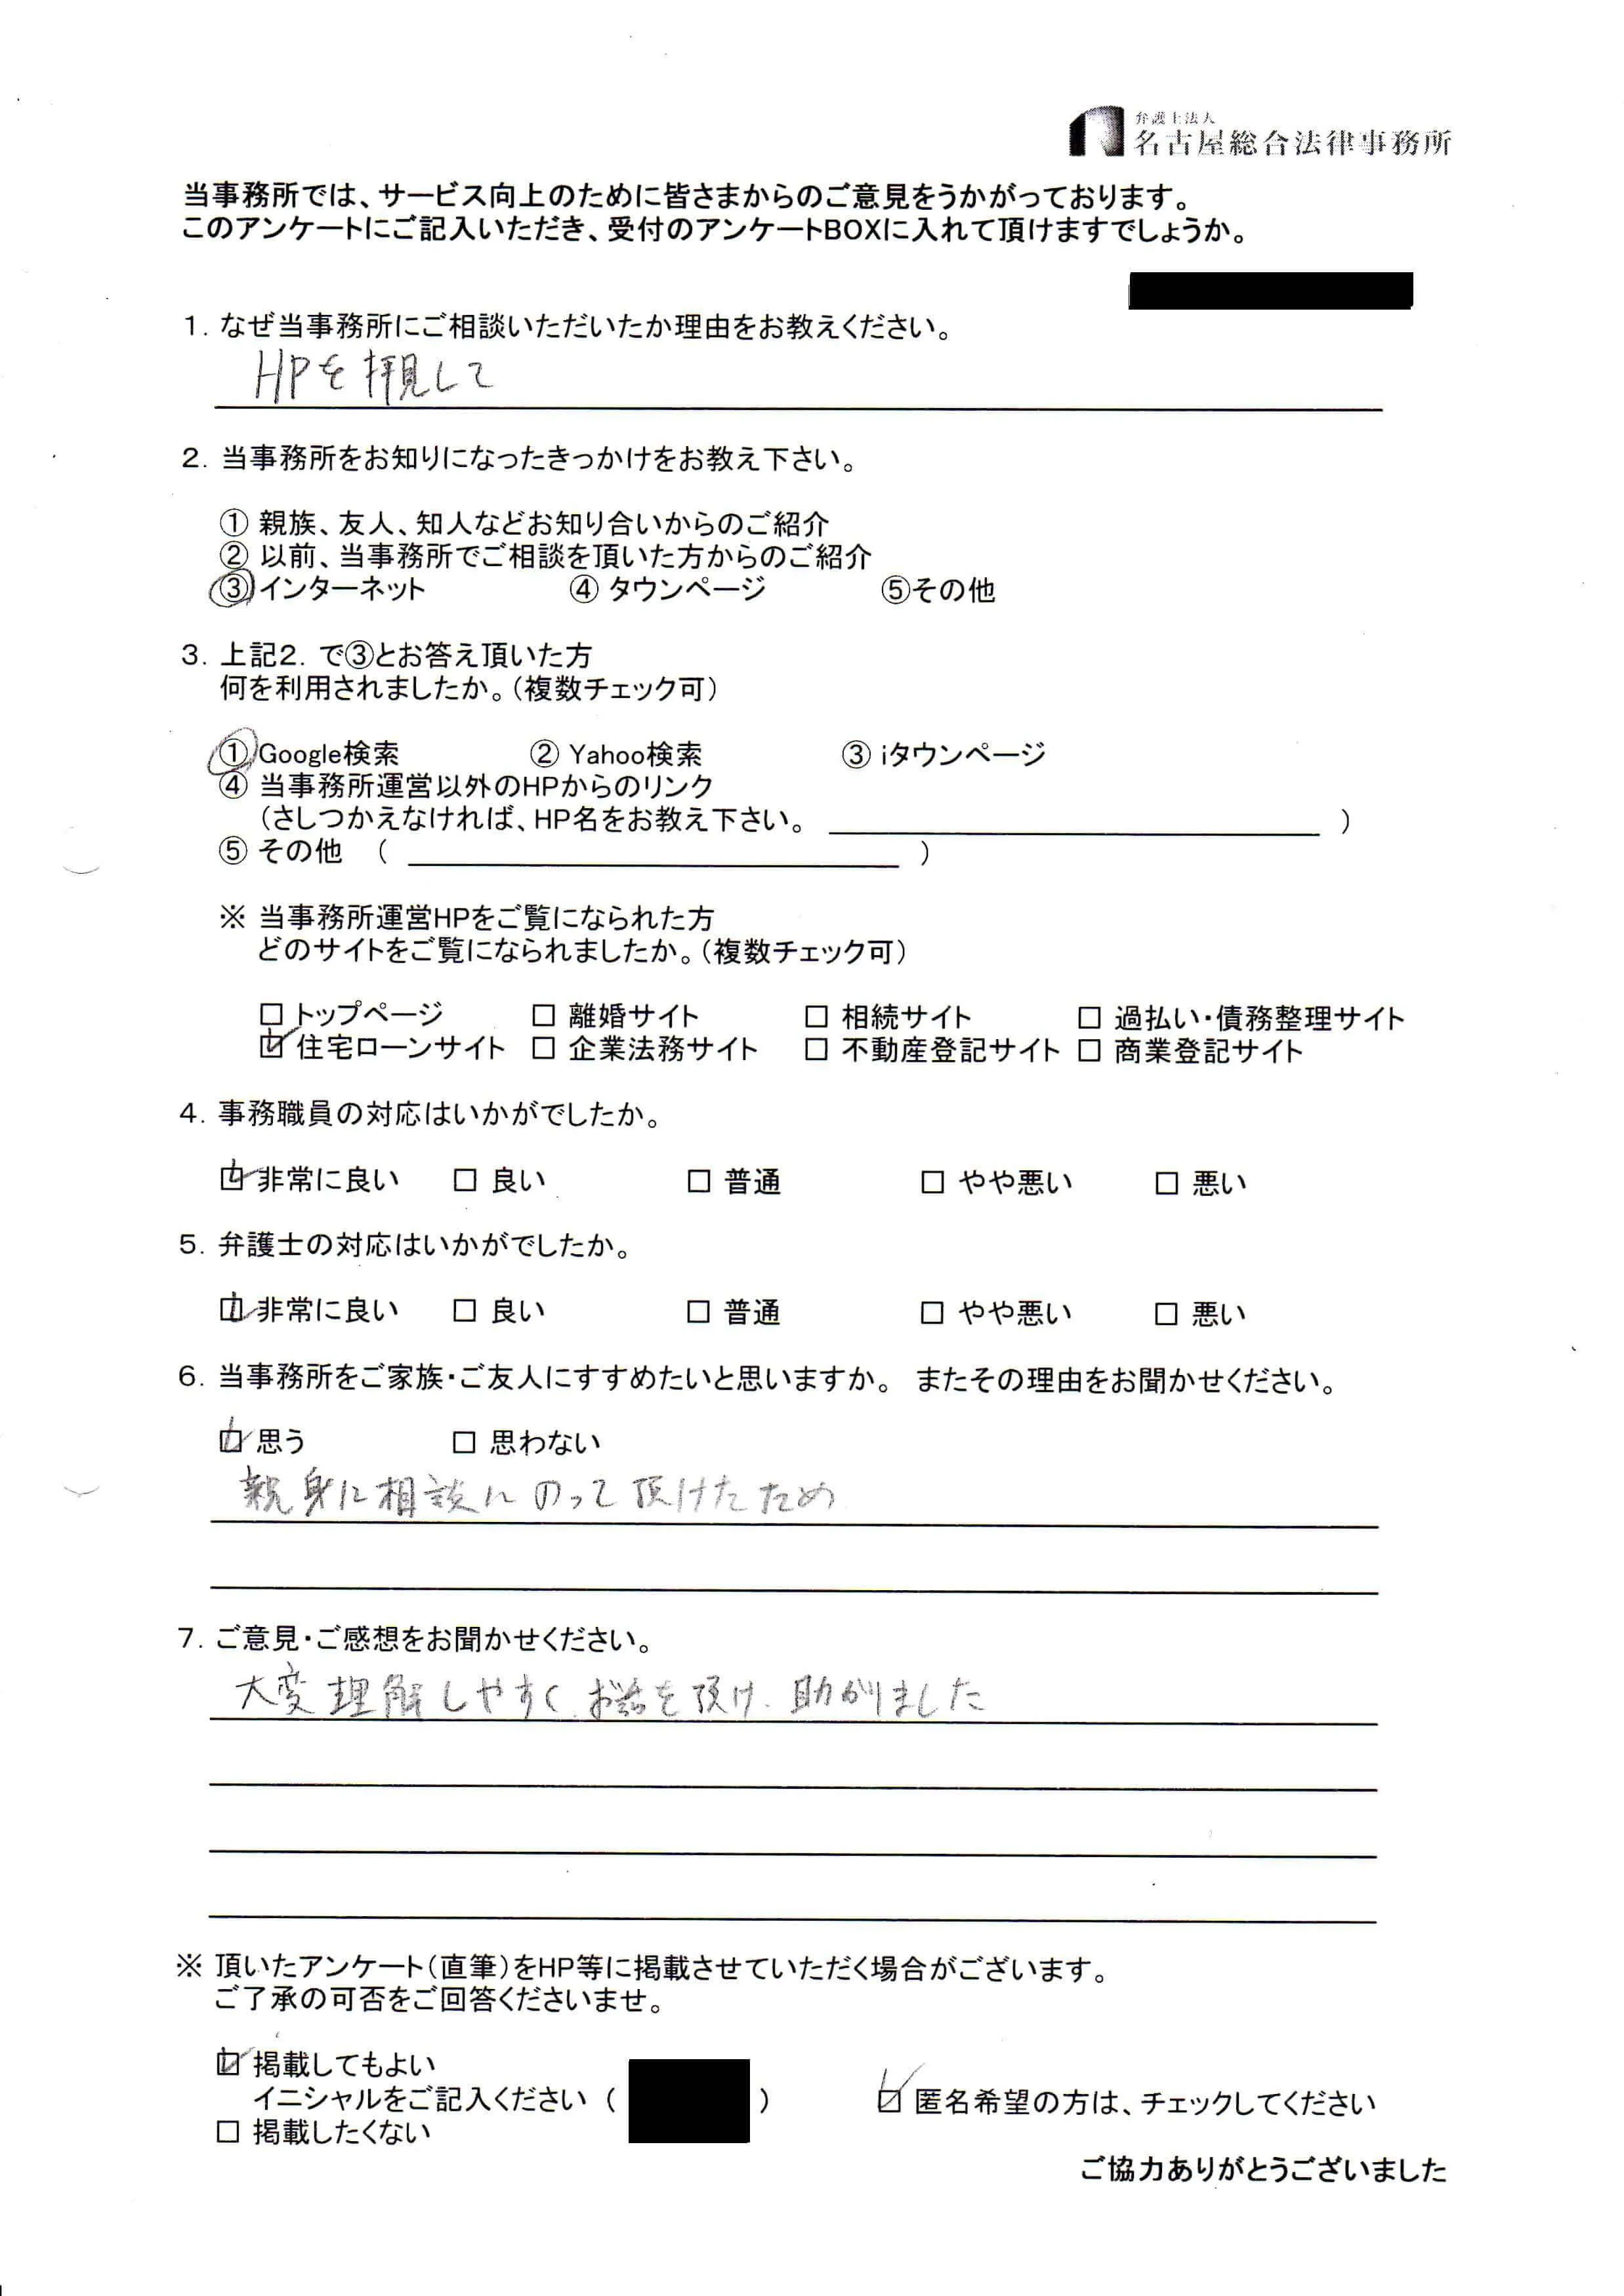 弁護士法人
名古屋総合法律事務所
当事務所では、サービス向上のために皆さまからのご意見をうかがっております。
このアンケートにご記入いただき、受付のアンケートBOXに入れて頂けますでしょうか。
1. なぜ当事務所にご相談いただいたか理由をお教えください。
HPを拝見して
2. 当事務所をお知りになったきっかけをお教え下さい。
① 親族、友人、知人などお知り合いからのご紹介
② 以前、当事務所でご相談を頂いた方からのご紹介
③ インターネット ④ タウンページ ⑤その他
3. 上記2. で③とお答え頂いた方
何を利用されましたか。(複数チェック可)
① Google検索 ② Yahoo検索 ③ iタウンページ
④ 当事務所運営以外のHPからのリンク
(さしつかえなければ、HP名をお教え下さい。 )
⑤ その他 ( )
※ 当事務所運営HPをご覧になられた方
どのサイトをご覧になられましたか。(複数チェック可)
□ トップページ □ 離婚サイト □ 相続サイト □ 過払い・債務整理サイト
☑ 住宅ローンサイト □ 企業法務サイト □ 不動産登記サイト □ 商業登記サイト
4. 事務職員の対応はいかがでしたか。
☑ 非常に良い □ 良い □ 普通 □ やや悪い □ 悪い
5. 弁護士の対応はいかがでしたか。
☑ 非常に良い □ 良い □ 普通 □ やや悪い □ 悪い
6. 当事務所をご家族・ご友人にすすめたいと思いますか。 またその理由をお聞かせください。
☑ 思う □ 思わない
親身に相談にのって頂けたため
7. ご意見・ご感想をお聞かせください。
大変理解しやすく、お話を頂け、助かりました
※ 頂いたアンケート(直筆)をHP等に掲載させていただく場合がございます。
ご了承の可否をご回答くださいませ。
☑ 掲載してもよい
イニシャルをご記入ください ( ) ☑ 匿名希望の方は、チェックしてください
□ 掲載したくない
ご協力ありがとうございました